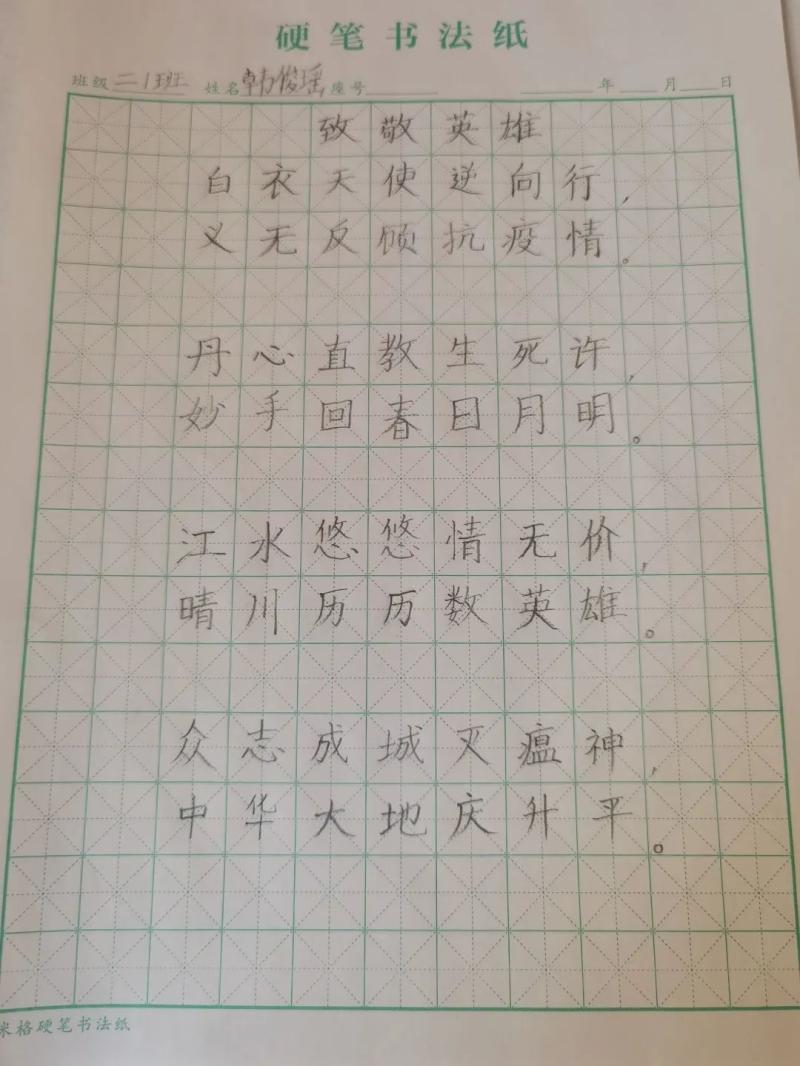 硬笔书法纸
班级 二1班 姓名 韩俊瑶 座号 年 月 日
致敬英雄
白衣天使逆向行，
义无反顾抗疫情。
丹心直教生死许，
妙手回春日月明。
江水悠悠情无价，
晴川历历数英雄。
众志成城灭瘟神，
中华大地庆升平。
米格硬笔书法纸